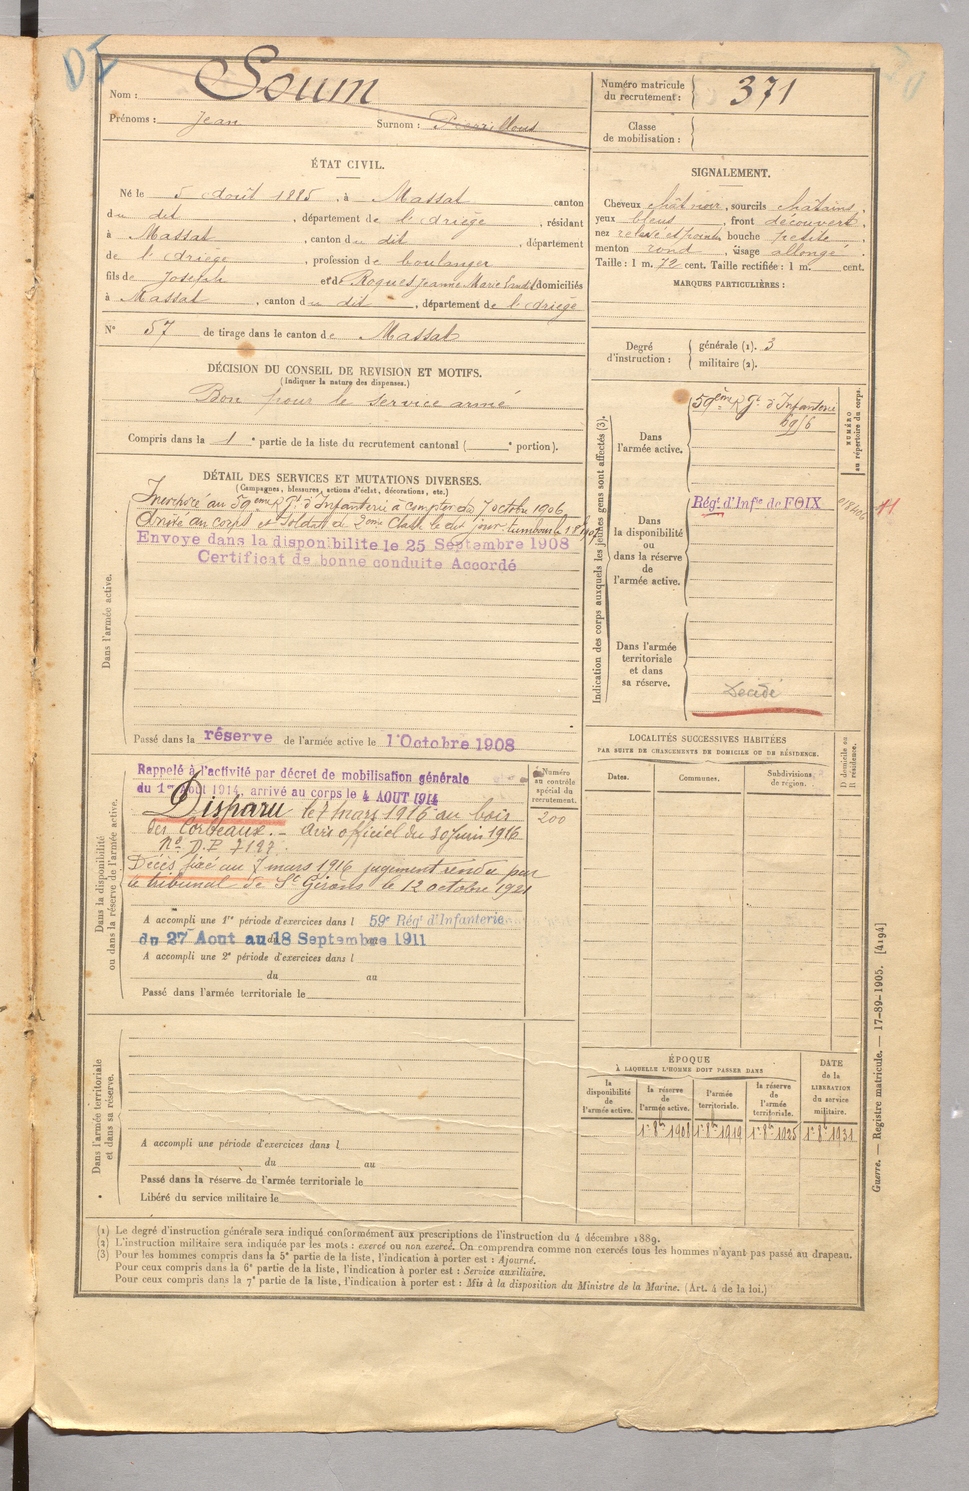 DI
Nom : Soum
Prénoms : Jean Surnom : Pierrillous
ÉTAT CIVIL.
Né le 5 Août 1885, à Massat canton
du dit, département de l'Ariège, résidant
à Massat, canton du dit, département
de l'Ariège, profession de boulanger
fils de Joseph et de Roques Jeanne Marie domiciliés
à Massat, canton du dit, département de l'Ariège
N° 57 de tirage dans le canton de Massat
DÉCISION DU CONSEIL DE REVISION ET MOTIFS.
(Indiquer la nature des dispenses.)
Bon pour le service armé
Compris dans la 1e partie de la liste du recrutement cantonal ( e portion).
DÉTAIL DES SERVICES ET MUTATIONS DIVERSES.
(Campagnes, blessures, actions d'éclat, décorations, etc.)
Dans l'armée active.
Incorporé au 59ème Rgt d'Infanterie à compter du 7 octobre 1906,
Arrivé au corps et soldat de 2ème classe le dit jour, tambour le
Envoye dans la disponibilite le 25 Septembre 1908
Certificat de bonne conduite Accordé
Passé dans la réserve de l'armée active le 1er Octobre 1908
Dans la disponibilité
ou dans la réserve de l'armée active.
Rappelé à l'activité par décret de mobilisation générale
du 1er Août 1914, arrivé au corps le 4 AOUT 1914
Disparu le 7 mars 1916 au bois
des Corbeaux. — Avis officiel du 30 Juin 1916
N° D.P. 7197.
Décès fixé au 7 mars 1916 jugement rendu par
le tribunal de St Girons le 12 octobre 1921
Numéro
au contrôle
spécial du
recrutement.
200
A accompli une 1re période d'exercices dans l 59e Régt d'Infanterie
du 27 Aout au 18 Septembre 1911
A accompli une 2e période d'exercices dans l
du au
Passé dans l'armée territoriale le
Dans l'armée territoriale
et dans sa réserve.
A accompli une période d'exercices dans l
du au
Passé dans la réserve de l'armée territoriale le
Libéré du service militaire le
Numéro matricule
du recrutement : 371
Classe
de mobilisation :
SIGNALEMENT.
Cheveux chât noir, sourcils châtains,
yeux bleus, front découvert,
nez relevé et pointu bouche petite,
menton rond, visage allongé.
Taille : 1 m. 72 cent. Taille rectifiée : 1 m. cent.
MARQUES PARTICULIÈRES :
Degré
d'instruction :
générale (1). 3
militaire (2).
Indication des corps auxquels les jeunes gens sont affectés (3).
NUMÉRO
au répertoire du corps.
Dans
l'armée active.
59ème Rgt d'Infanterie
Dans
la disponibilité
ou
dans la réserve
de
l'armée active.
Régt d'Infie de FOIX
Dans l'armée
territoriale
et dans
sa réserve.
Décédé
LOCALITÉS SUCCESSIVES HABITÉES
PAR SUITE DE CHANGEMENTS DE DOMICILE OU DE RÉSIDENCE.
Dates. Communes. Subdivisions
de région.
D domicile ou
R résidence.
ÉPOQUE
À LAQUELLE L'HOMME DOIT PASSER DANS
la
disponibilité
de
l'armée active.
la réserve
de
l'armée active.
l'armée
territoriale.
la réserve
de
l'armée
territoriale.
DATE
de la
LIBÉRATION
du service
militaire.
1er 8bre 1908 1er 8bre 1919 1er 8bre 1925 1er 8bre 1931
Guerre. — Registre matricule. — 17-89-1905. [4194]
(1) Le degré d'instruction générale sera indiqué conformément aux prescriptions de l'instruction du 4 décembre 1889.
(2) L'instruction militaire sera indiquée par les mots : exercé ou non exercé. On comprendra comme non exercés tous les hommes n'ayant pas passé au drapeau.
(3) Pour les hommes compris dans la 5e partie de la liste, l'indication à porter est : Ajourné.
Pour ceux compris dans la 6e partie de la liste, l'indication à porter est : Service auxiliaire.
Pour ceux compris dans la 7e partie de la liste, l'indication à porter est : Mis à la disposition du Ministre de la Marine. (Art. 4 de la loi.)